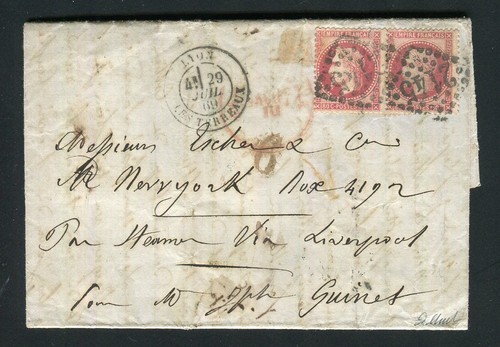 EMPIRE FRANÇAIS EMPIRE FRANÇAIS
LYON
29
JUIL
69
LES TERREAUX
Messieurs Escher & Co
New york Box 4192
Par Steamer Via Liverpool
pour Mr Guinet